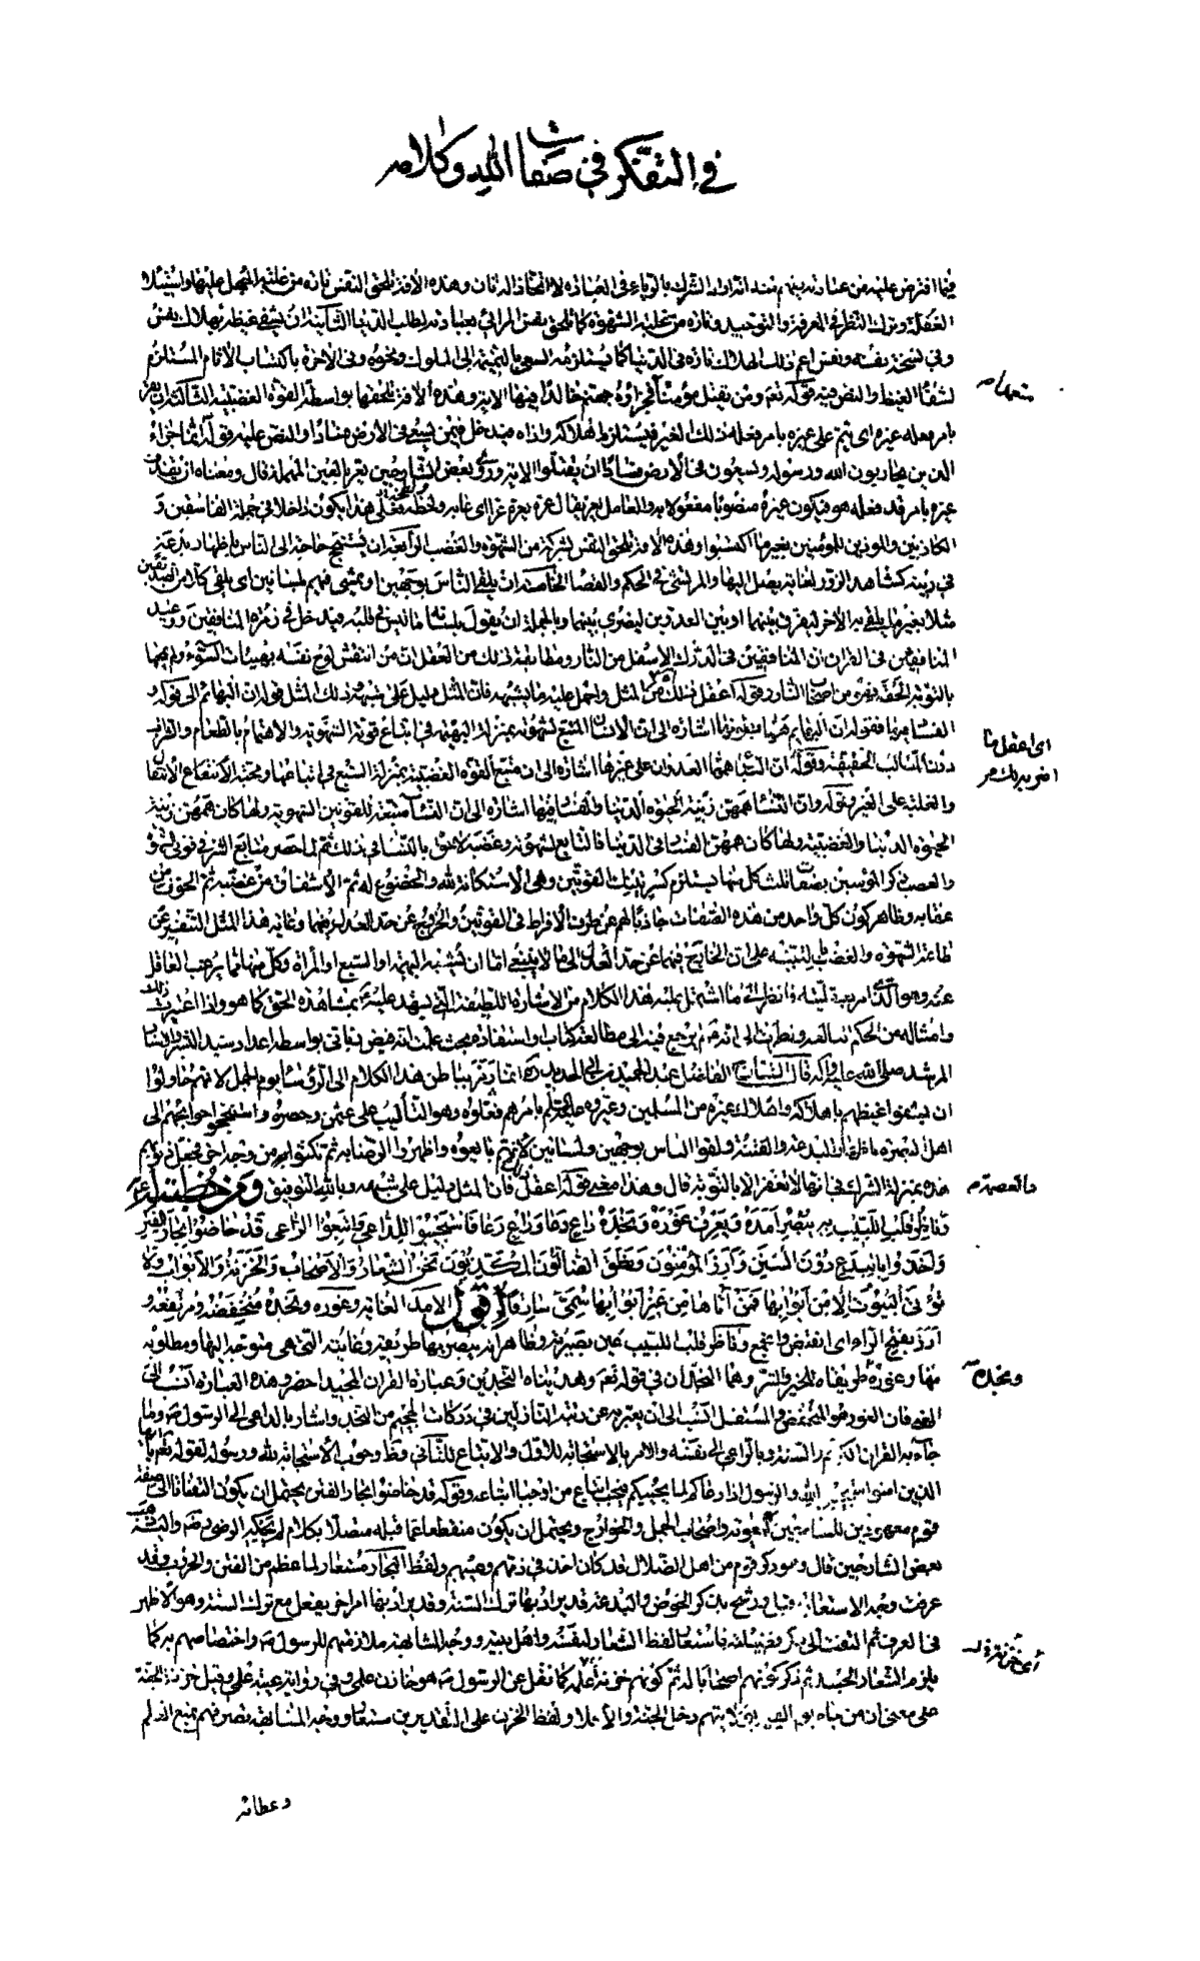 في التفكر في صفات الله وكلامه
فيما افترض عليه من عبادته بينهم منه انه اراد الشرك بالرياء في العبادة لا اتخاذ الثان وهذه الافة تلحق النفس تارة من غلبة الجهل عليها واستيلاء
الغفلة وترك النظر في المعرفة والتوحيد وتارة من غلبة الشهوة كما تلحق نفس المرائي بعبادته لطلب الدنيا الثانية ان يشفي غيظه بهلاك نفس
وفي نسخة نفسه ونفس اعم ذلك الهلاك تارة في الدنيا كما يستلزمه السعي بالنميمة الى الملوك ونحوه وفي الاخرة باكتساب الاثام المستلزم
لشفاء الغيظ والنص فيه قوله تعم ومن يقتل مؤمنا فجزاؤه جهنم خالدا فيها الاية وهذه الافة تلحقها بواسطة القوة الغضبية الثالثة ان يعر
بامر فعله غيره اي يتم على غيره بامر فعله ذلك الغير فيستلزم هلاكه واذاه فيدخل فيمن يسعى في الارض فسادا والنص عليه قوله انما جزاء
الذين يحاربون الله ورسوله ويسعون في الارض فسادا ان يقتلوا الاية وروى بعض الشارحين يعر بالعين المهملة قال ومعناه ان يقذف
غيره بامر قد فعله هو فيكون غيره منصوبا مفعولا به والعامل يعر يقال عره يعره عرا اي عابه ولطخه فعلى هذا يكون داخلا في جملة الفاسقين و
الكاذبين والموذين للمؤمنين بغير ما اكتسبوا وهذه الافة تلحق النفس بشركة من الشهوة والغضب الرابعة ان يستنجح حاجة الى الناس باظهار بدعة
في دينه كشاهد الزور لغاية يصل اليها والمرتشي في الحكم والقضاء الخامسة ان يلقى الناس بوجهين او يمشي فيهم بلسانين اي يلقى كلا من الصديقين
مثلا بغير ما يلقى به الاخر ليفرق بينهما او بين العدوين ليضري بينهما وبالجملة ان يقول بلسانه ما ليس في قلبه فيدخل في زمرة المنافقين ووعيد
المنافقين في القران ان المنافقين في الدرك الاسفل من النار ومطابقة ذلك من العقل ان من انتقش لوح نفسه بهيئات السوء ولم يمحها
بالتوبة الحقة فهو من اصحاب النار وقوله اعقل ذلك فان المثل واحمل عليه ما يشبهه فان المثل دليل على شبهه وذلك المثل قوله ان البهائم الى قوله و
الفساد فيها فقوله ان البهائم همها بطونها اشارة الى ان الانسان المتبع لشهوته بمنزلة البهيمة في اتباع قوته الشهوية والاهتمام بالطعام والشراب
دون المطالب الحقيقية وقوله ان السباع همها العدوان على غيرها اشارة الى ان متبع القوة الغضبية بمنزلة السبع في اتباعها ومحبة الانتقام
والغلبة على الغير وقوله وان النساء همهن زينة الحيوة الدنيا والفساد فيها اشارة الى ان النساء متبعة للقوتين الشهوية ولها كان همهن زينة
الحيوة الدنيا والغضبية ولها كان همهن الفساد في الدنيا فالتابع لشهوته وغضبه لاحق بالنساء في ذلك ثم لما حصر منابع الشر في قوتي الشهوة
والغضب ذكر المؤمنين بصفات لكل منها يستلزم كسر تينك القوتين وهي الاستكانة لله والخضوع له ثم الاشفاق من غضبه ثم الخوف من
عقابه وظاهر كون كل واحد من هذه الصفات جاذبا لهم عن طرف الافراط في القوتين والخروج عن حد العدل فيهما وغاية هذا المثل التنفير عن
طاعة الشهوة والغضب بالتنبيه على ان الخارج فيهما عن حد العدل الى ما لا ينبغي اما ان يشبه البهيمة او السبع او المراة وكل منها مما يرغب العاقل
عنه وهو الذي امر بعقليته فانظر الى ما اشتمل عليه هذا الكلام من الاشارة اللطيفة التي يشهد عليه بمشاهدة الحق كما هو واذا اعتبرت ذلك
وامثاله من الحكم البالغة ونظرت الى انه لم يرجع فيه الى مطالعة كتاب واستفادة بحث علمت انه فيض رباني بواسطة اعداد سيد البشر والاستاذ
المرشد صلى الله عليه وآله قال الشارح الفاضل عبد الحميد بن ابي الحديد ره انما رمز بباطن هذا الكلام الى الرؤساء يوم الجمل لانهم حاولوا
ان يشفوا غيظهم باهلاكه واهلاك غيره من المسلمين وعروه عليه السلم بامرهم فعلوه وهو التاليب على عثمن وحصره واستنجحوا حوائجهم الى
اهل البصرة باظهار البدعة والفتنة ولقوا الناس بوجهين ولسانين لانهم بايعوه واظهروا الرضا به ثم نكثوا به من وجه اخر فجعل ذنوبهم
هذه بمنزلة الشرك في انها لا تغفر الا بالتوبة قال وهذا معنى قوله اعقل ذلك فان المثل دليل على شبهه وبالله التوفيق ومن خطبة له ع
وناظر قلب اللبيب به يبصر امده ويعرف غوره ونجده داع دعا وراع رعا فاستجيبوا للداعي واتبعوا الراعي قد خاضوا بحار الفتن
واخذوا بالبدع دون السنن وارز المؤمنون ونطق الضالون المكذبون نحن الشعار والاصحاب والخزنة والابواب ولا
تؤتى البيوت الا من ابوابها فمن اتاها من غير ابوابها سمي سارقا اقول الامد الغاية وغوره ونجده منخفضه ومرتفعه و
ارز بفتح الراء اي انقبض وانجمع وناظر قلب اللبيب عين بصيرته وظاهر انه يبصر بها طريقه وغايته التي هي متوجه اليها ومطلوبه
منها وغوره ونجده طريقاه للخير والشر وهما النجدان في قوله تعم وهديناه النجدين وعبارة القران المجيد اخصر وهذه العبارة انسب الى
الفهم فان الغور هو المنخفض والمستفل انسب الى ان يعبر به عن رتبة النازلين في دركات الجحيم من النجد واشار بالداعي الى الرسول ص وما
جاء به القران الكريم والسنة وبالراعي الى نفسه والامر بالاستجابة للاول والاتباع للثاني وظ وجوب الاستجابة لله ورسوله لقوله تعم يا ايها
الذين امنوا استجيبوا لله وللرسول اذا دعاكم لما يحييكم فيجب اتباع من اوجبا اتباعه وقوله قد خاضوا بحار الفتن يحتمل ان يكون التفاتا الى صفة
قوم معهودين للسامعين كمعوية واصحاب الجمل والخوارج ويحتمل ان يكون منقطعا عما قبله متصلا بكلام لم يحكه الرضي رضه واليه ذهب
بعض الشارحين قال وهو ذكر قوم من اهل الضلال قد كان اخذ في ذمهم وعيبهم ولفظ البحار مستعار لما عظم من الفتن والحروب وقد
عرفت وجه الاستعارة قبل ورشح بذكر الخوض والبدعة قد يراد بها ترك السنة وقد يراد بها امر اخر يفعل مع ترك السنة وهو الاظهر
في العرف ثم التفت الى ذكر فضيلته فاستعار لفظ الشعار لنفسه واهل بيته ووجه المشابهة ملازمتهم للرسول ص واختصاصهم به كما
يلزم الشعار الجسد ثم ذكر كونهم اصحابا له ثم كونهم خزنة علمه كما نقل عن الرسول ص هو خازن علمي وفي رواية عيبة علمي وقيل خزنة الجنة
على معنى ان من جاء يوم القيمة بولايتهم دخل الجنة والا فلا ولفظ الخزن على التقديرين مستعار ووجه المشابهة تصرفهم بمنع العلم
اي اعقل ما
اضربه لك من
ما تعصد م
ونجده
اي خزنة له
وعطائه